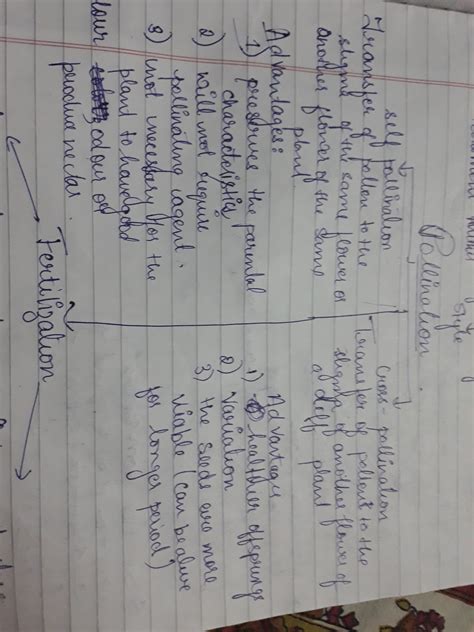 style
Pollination.
self pollination
Transfer of pollen to the
stigma of the same flower or
another flower of the same
plant
Advantages:
1) preserves the parental
characteristics
2) will not require
pollinating agent.
3) not necessary for the
plant to have good
colour odour or
produce nectar.
Cross-pollination
Transfer of pollens to the
stigma of another flower of
a diff plant
Advantages
1) healthier offsprings
2) Variation
3) the seeds are more
viable (can be alive
for longer period)
Fertilization